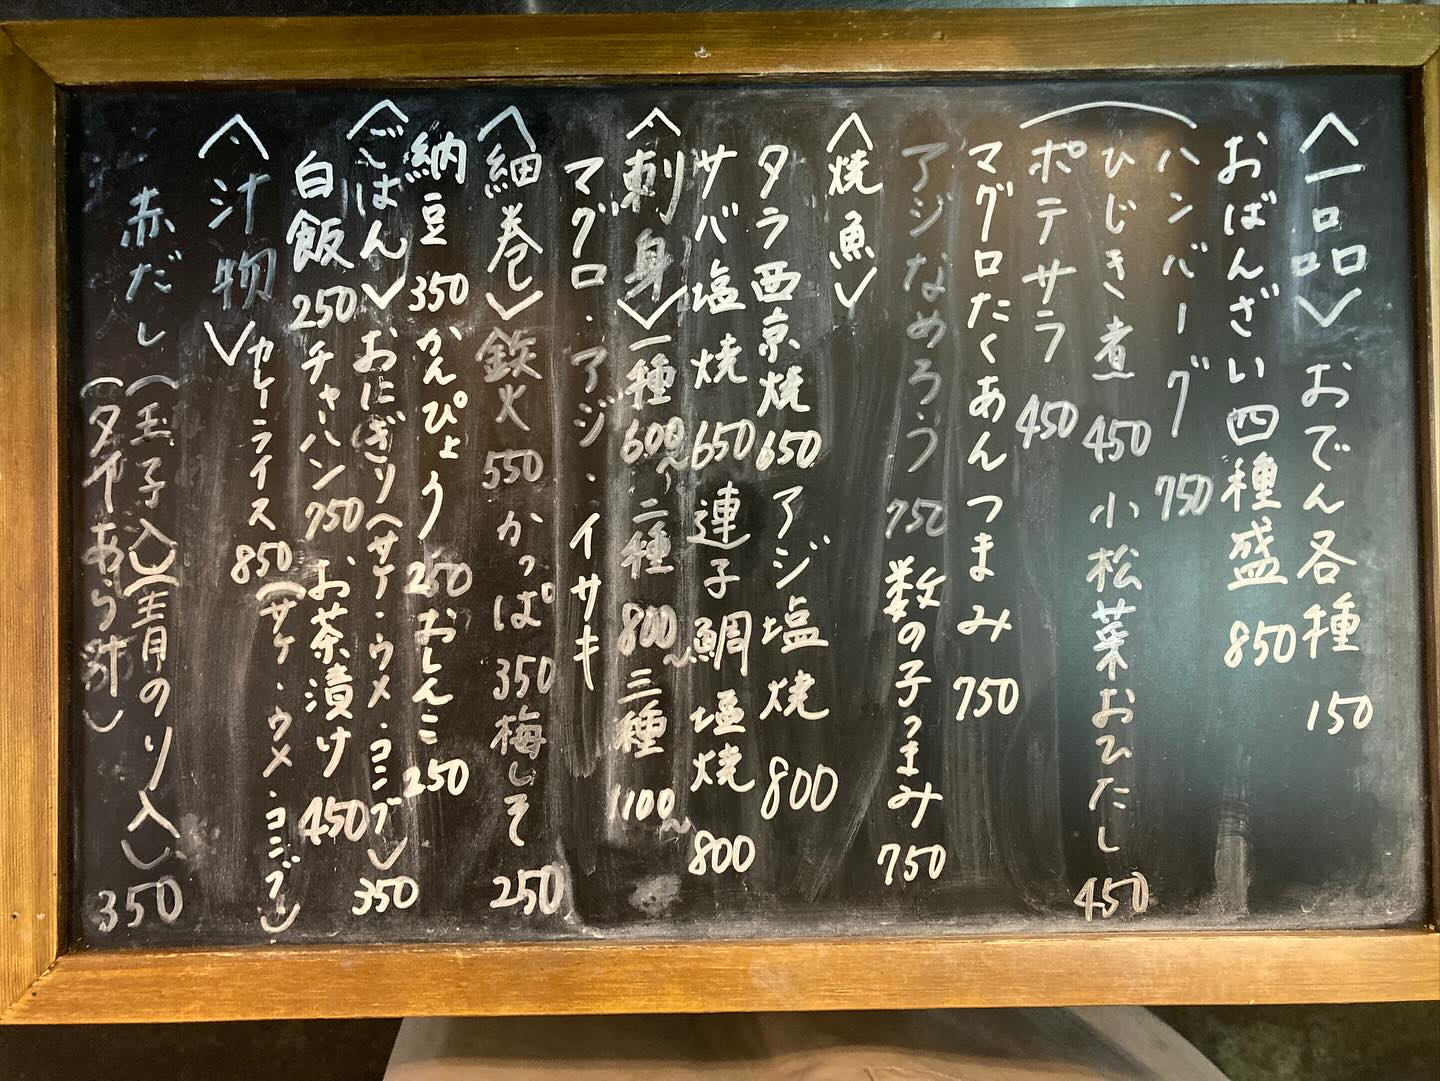 〈一品〉おでん各種 150
おばんざい四種盛 850
ハンバーグ 750
ひじき煮 450 小松菜おひたし 450
ポテサラ 450
マグロたくあんつまみ 750
アジなめろう 750 数の子つまみ 750
〈焼魚〉
タラ西京焼 650 アジ塩焼 800
サバ塩焼 650 連子鯛塩焼 800
〈刺身〉一種 600〜 二種 800〜 三種 1100〜
マグロ・アジ・イサキ
〈細巻〉鉄火 550 かっぱ 350 梅しそ 250
納豆 350 かんぴょう 250 おしんこ 250
〈ごはん〉おにぎり(サケ・ウメ・コンブ) 350
白飯 250 チャーハン 750 お茶漬け 450
(サケ・ウメ・コンブ)
ライス 850
〈汁物〉
赤だし(玉子入)(青のり入) 350
(タイあら汁)